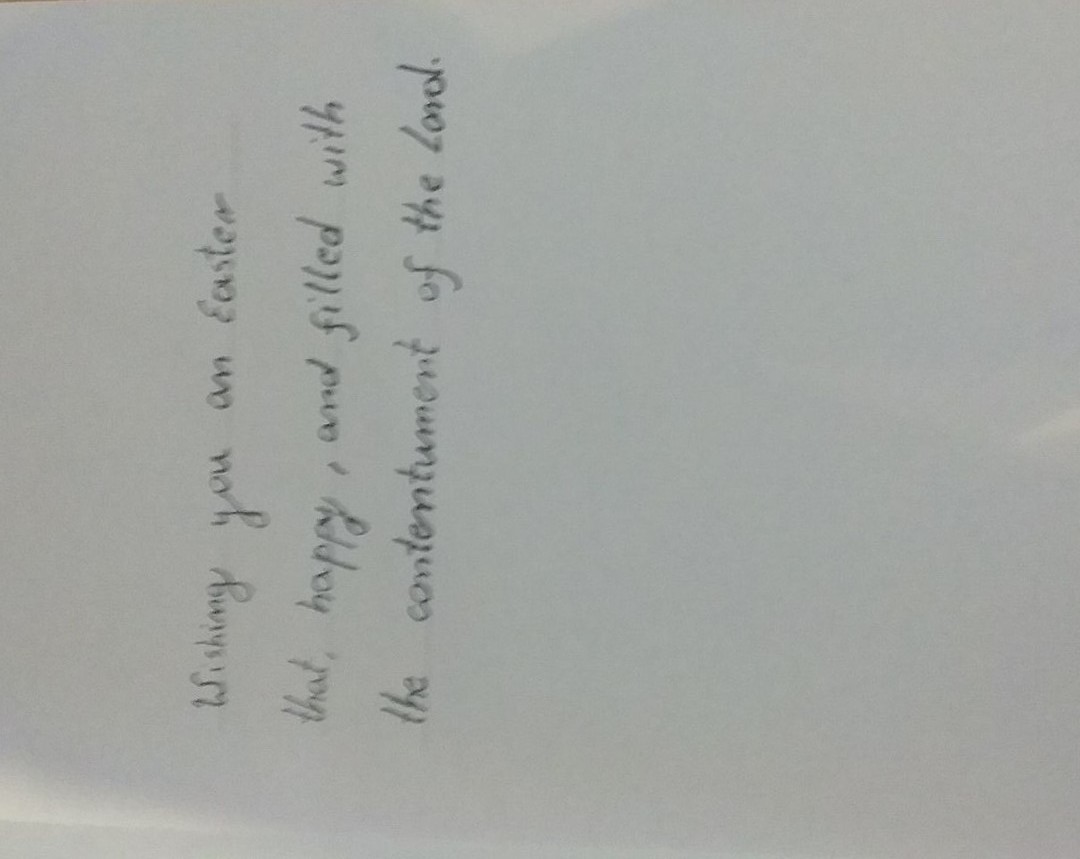 Wishing you an Easter
that, happy, and filled with
the contentument of the Lord.